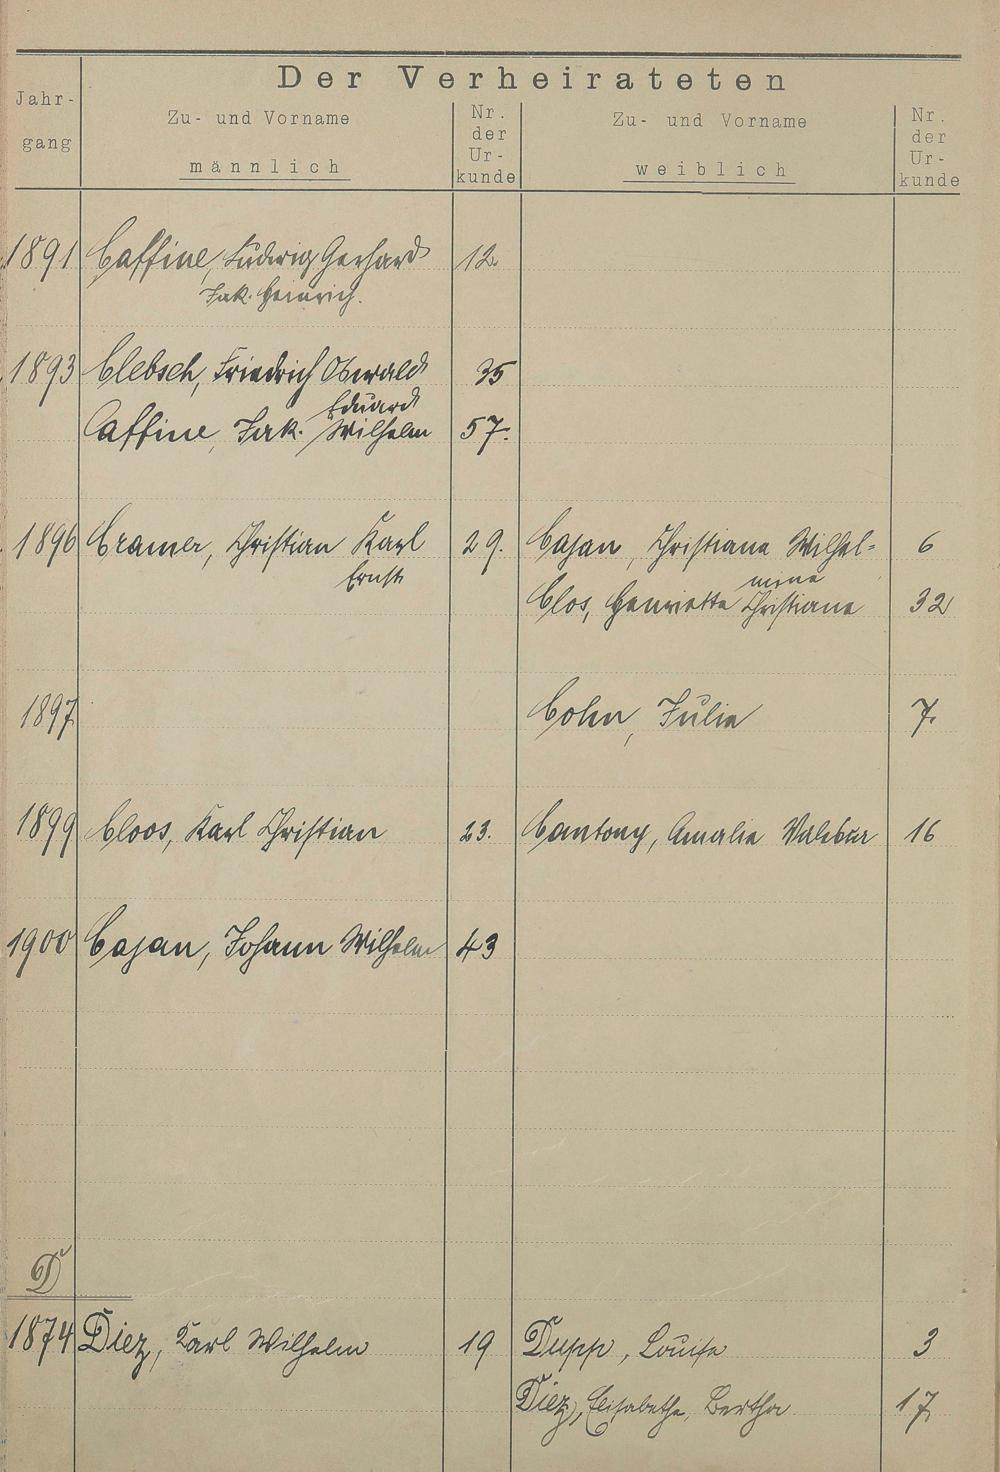 Der Verheirateten
Jahr-
gang
Zu- und Vorname
männlich
Nr.
der
Ur-
kunde
Zu- und Vorname
weiblich
Nr.
der
Ur-
kunde
1891 Caffine, Ludwig Gerhard 12.
Jak. Heinrich.
1893 Clebsch, Friedrich Oswald 35
Eduard
Caffine, Jak. Wilhelm 57.
1896 Cramer, Christian Karl 29. Cajan, Christiane Wilhel= 6
Ernst mine
Clos, Henriette Christiane 32
1897 Cohn, Julie 7.
1899 Cloos, Karl Christian 23. Cantony, Amalie Walebur 16
1900 Cajan, Johann Wilhelm 43
D
1874 Diez, Karl Wilhelm 19 Dupp, Louise 3
Diez, Elisabethe, Bertha 17.